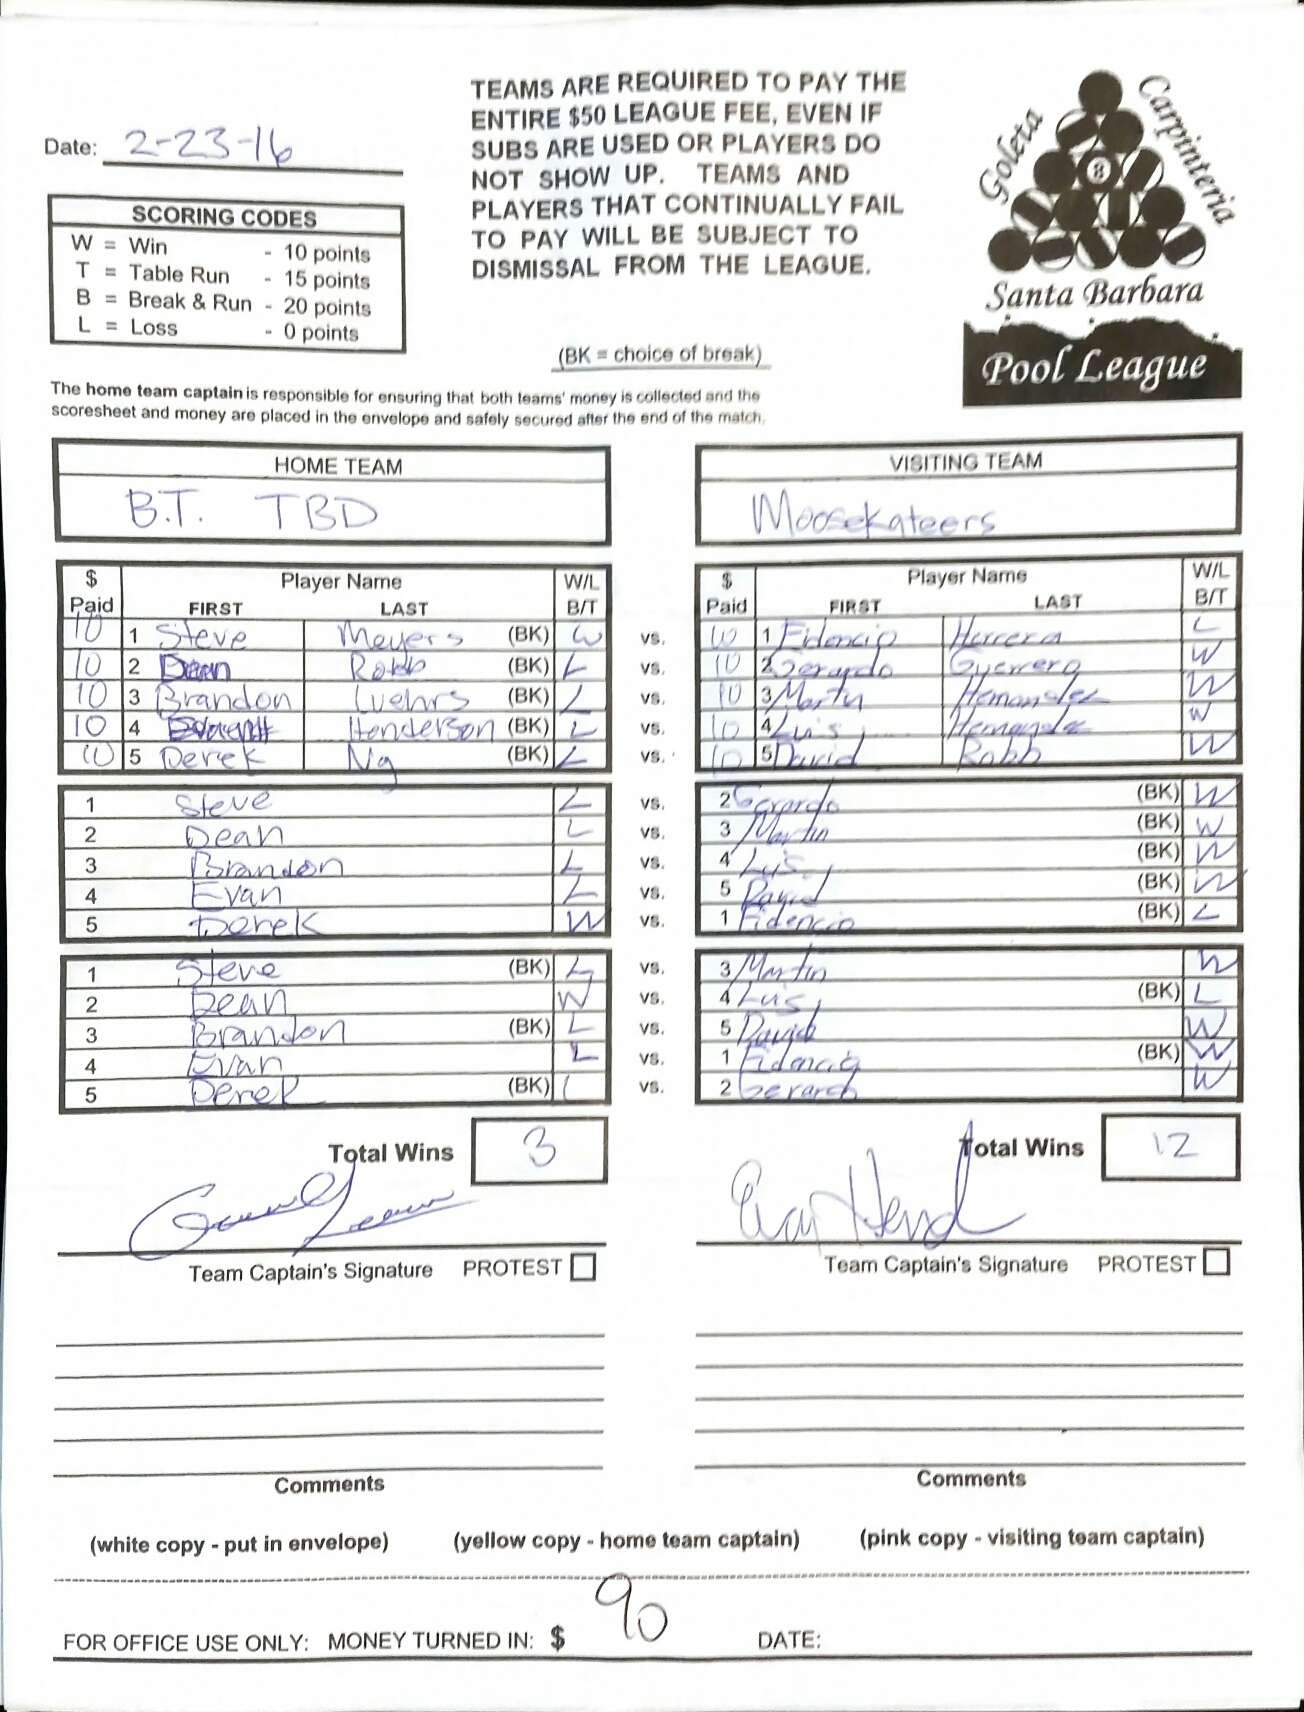 TEAMS ARE REQUIRED TO PAY THE
ENTIRE $50 LEAGUE FEE, EVEN IF
SUBS ARE USED OR PLAYERS DO
NOT SHOW UP. TEAMS AND
PLAYERS THAT CONTINUALLY FAIL
TO PAY WILL BE SUBJECT TO
DISMISSAL FROM THE LEAGUE.
Goleta
Carpinteria
8
Santa Barbara
Pool League
Date: 2-23-16
SCORING CODES
W = Win - 10 points
T = Table Run - 15 points
B = Break & Run - 20 points
L = Loss - 0 points
(BK = choice of break)
The home team captain is responsible for ensuring that both teams' money is collected and the
scoresheet and money are placed in the envelope and safely secured after the end of the match.
HOME TEAM
B.T. TBD
VISITING TEAM
Moosekateers
$ Player Name W/L
Paid FIRST LAST B/T
$ Player Name W/L
Paid FIRST LAST B/T
10 1 Steve Meyers (BK) W vs. 10 1 Fidencio Herrera L
10 2 Dean Robb (BK) L vs. 10 2 Gerardo Guerrero W
10 3 Brandon Luehrs (BK) L vs. 10 3 Martin Hernandez W
10 4 Henderson (BK) L vs. 10 4 Luis Hernandez W
10 5 Derek Ng (BK) L vs. 10 5 David Robb W
1 Steve L vs. 2 Gerardo (BK) W
2 Dean L vs. 3 Martin (BK) W
3 Brandon L vs. 4 Luis (BK) W
4 Evan L vs. 5 David (BK) W
5 Derek W vs. 1 Fidencio (BK) L
1 Steve (BK) L vs. 3 Martin W
2 Dean W vs. 4 Luis (BK) L
3 Brandon (BK) L vs. 5 David W
4 Evan L vs. 1 Fidencio (BK) W
5 Derek (BK) L vs. 2 Gerardo W
Total Wins 3
Total Wins 12
Team Captain's Signature PROTEST
Team Captain's Signature PROTEST
Comments
Comments
(white copy - put in envelope) (yellow copy - home team captain) (pink copy - visiting team captain)
FOR OFFICE USE ONLY: MONEY TURNED IN: $ 90 DATE: